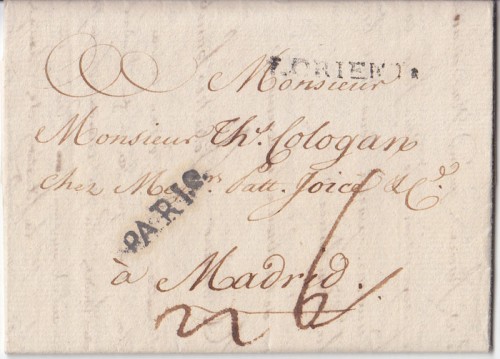 L'ORIENT
Monsieur
Monsieur Ths. Cologan
chez Messrs. Patt. Joice & Co.
PARIS
à Madrid.